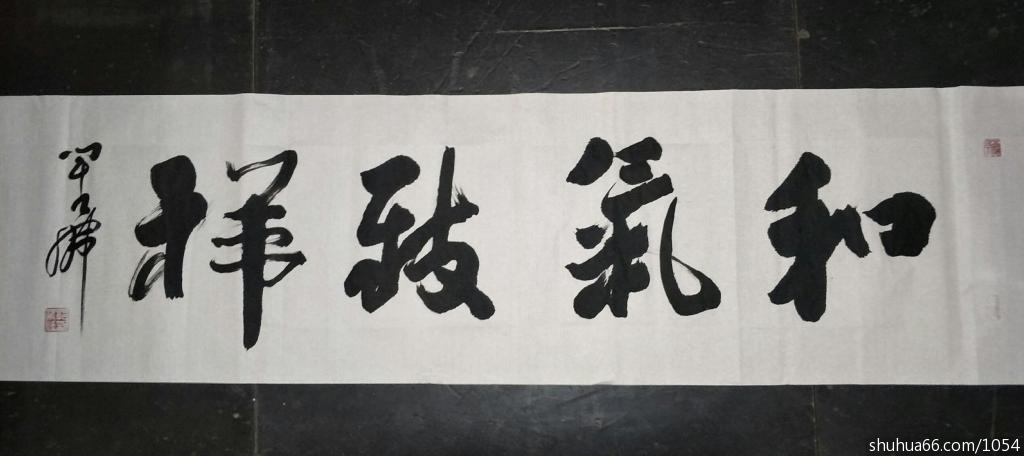 和氣致祥
shuhua66.com/1054